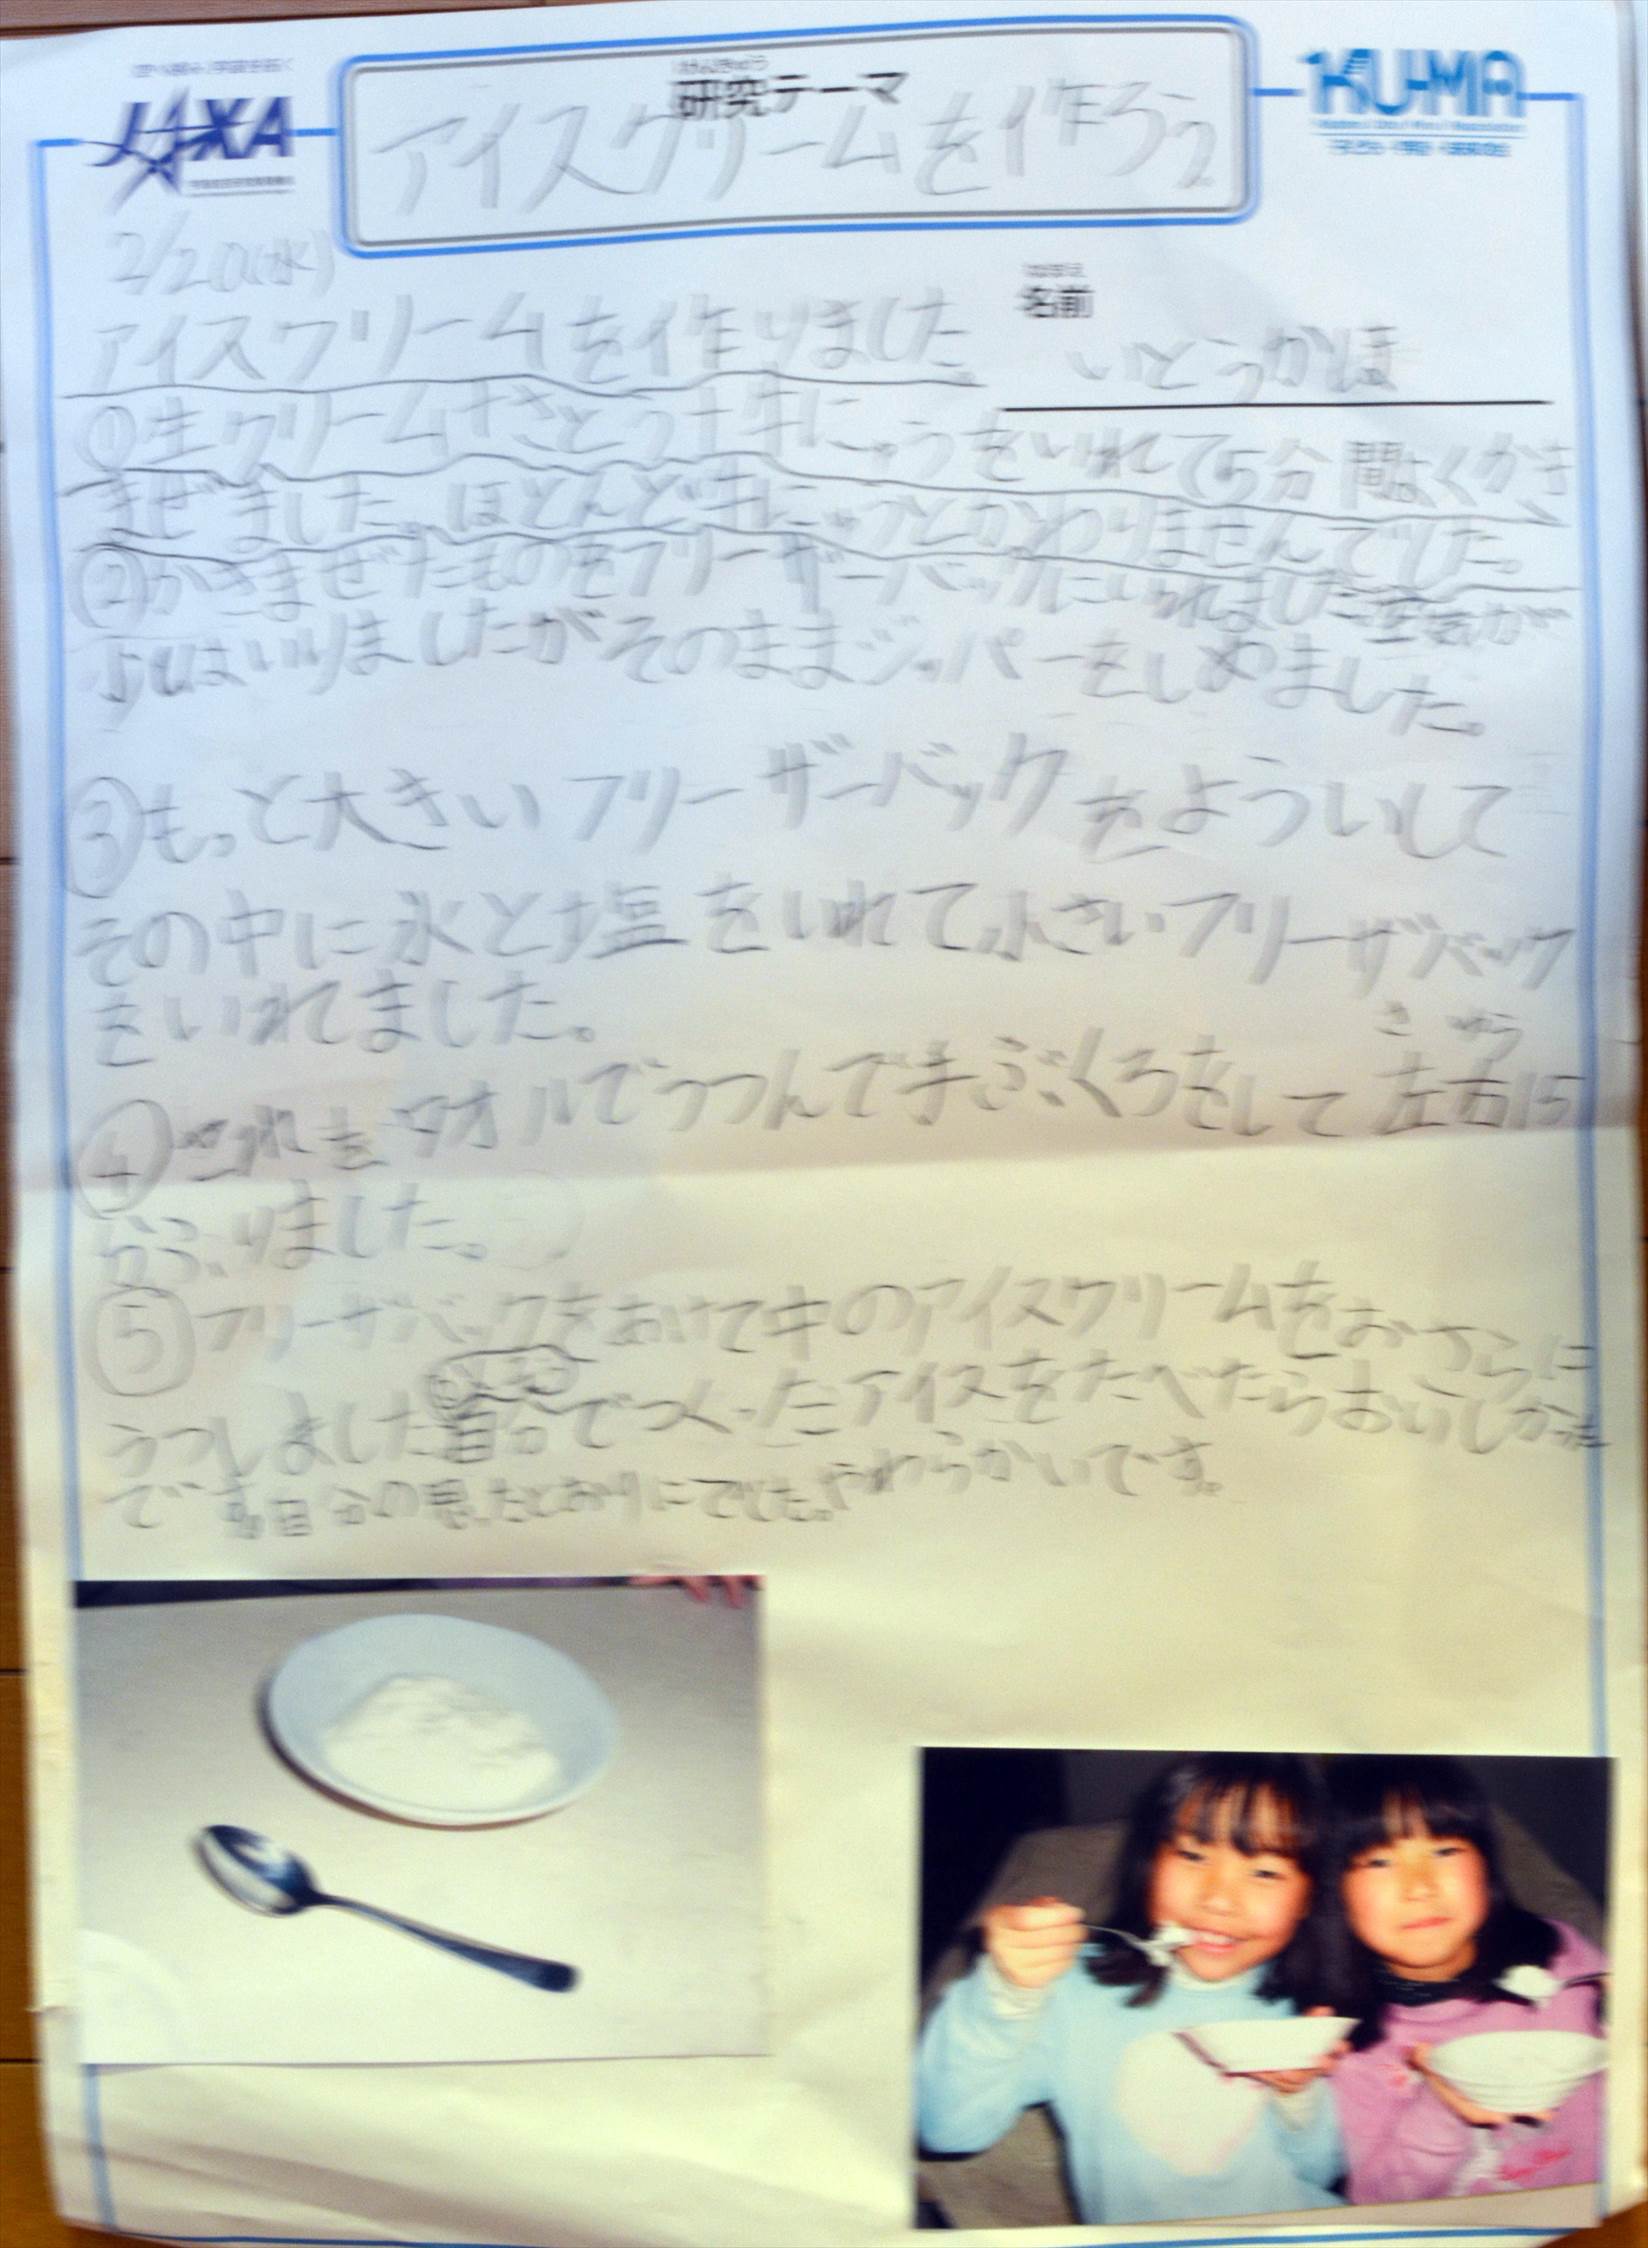 JAXA
けんきゅう
研究テーマ
アイスクリームを作ろう
KU-MA
2/20(水)
なまえ
名前
いとうかほ
アイスクリームを作りました。
①生クリーム+さとう+牛にゅうをいれて5分間よくかき
まぜました。ほとんど牛にゅうとかわりませんでした。
②かきまぜたものをフリーザーバックにいれました空気が
少しはいりましたがそのままジッパーをしめました。
③もっと大きいフリーザーバックをよういして
その中に氷と塩をいれて小さいフリーザバック
をいれてました。
きゆう
④それをタオルでつつんで手ぶくろをして左右15
ふりました。
⑤フリーザバックをあけて中のアイスクリームをおさらに
うつしました自分でつくったアイスをたべたらおいしかった
です自分の思ったとおりにでした。やわらかいです。